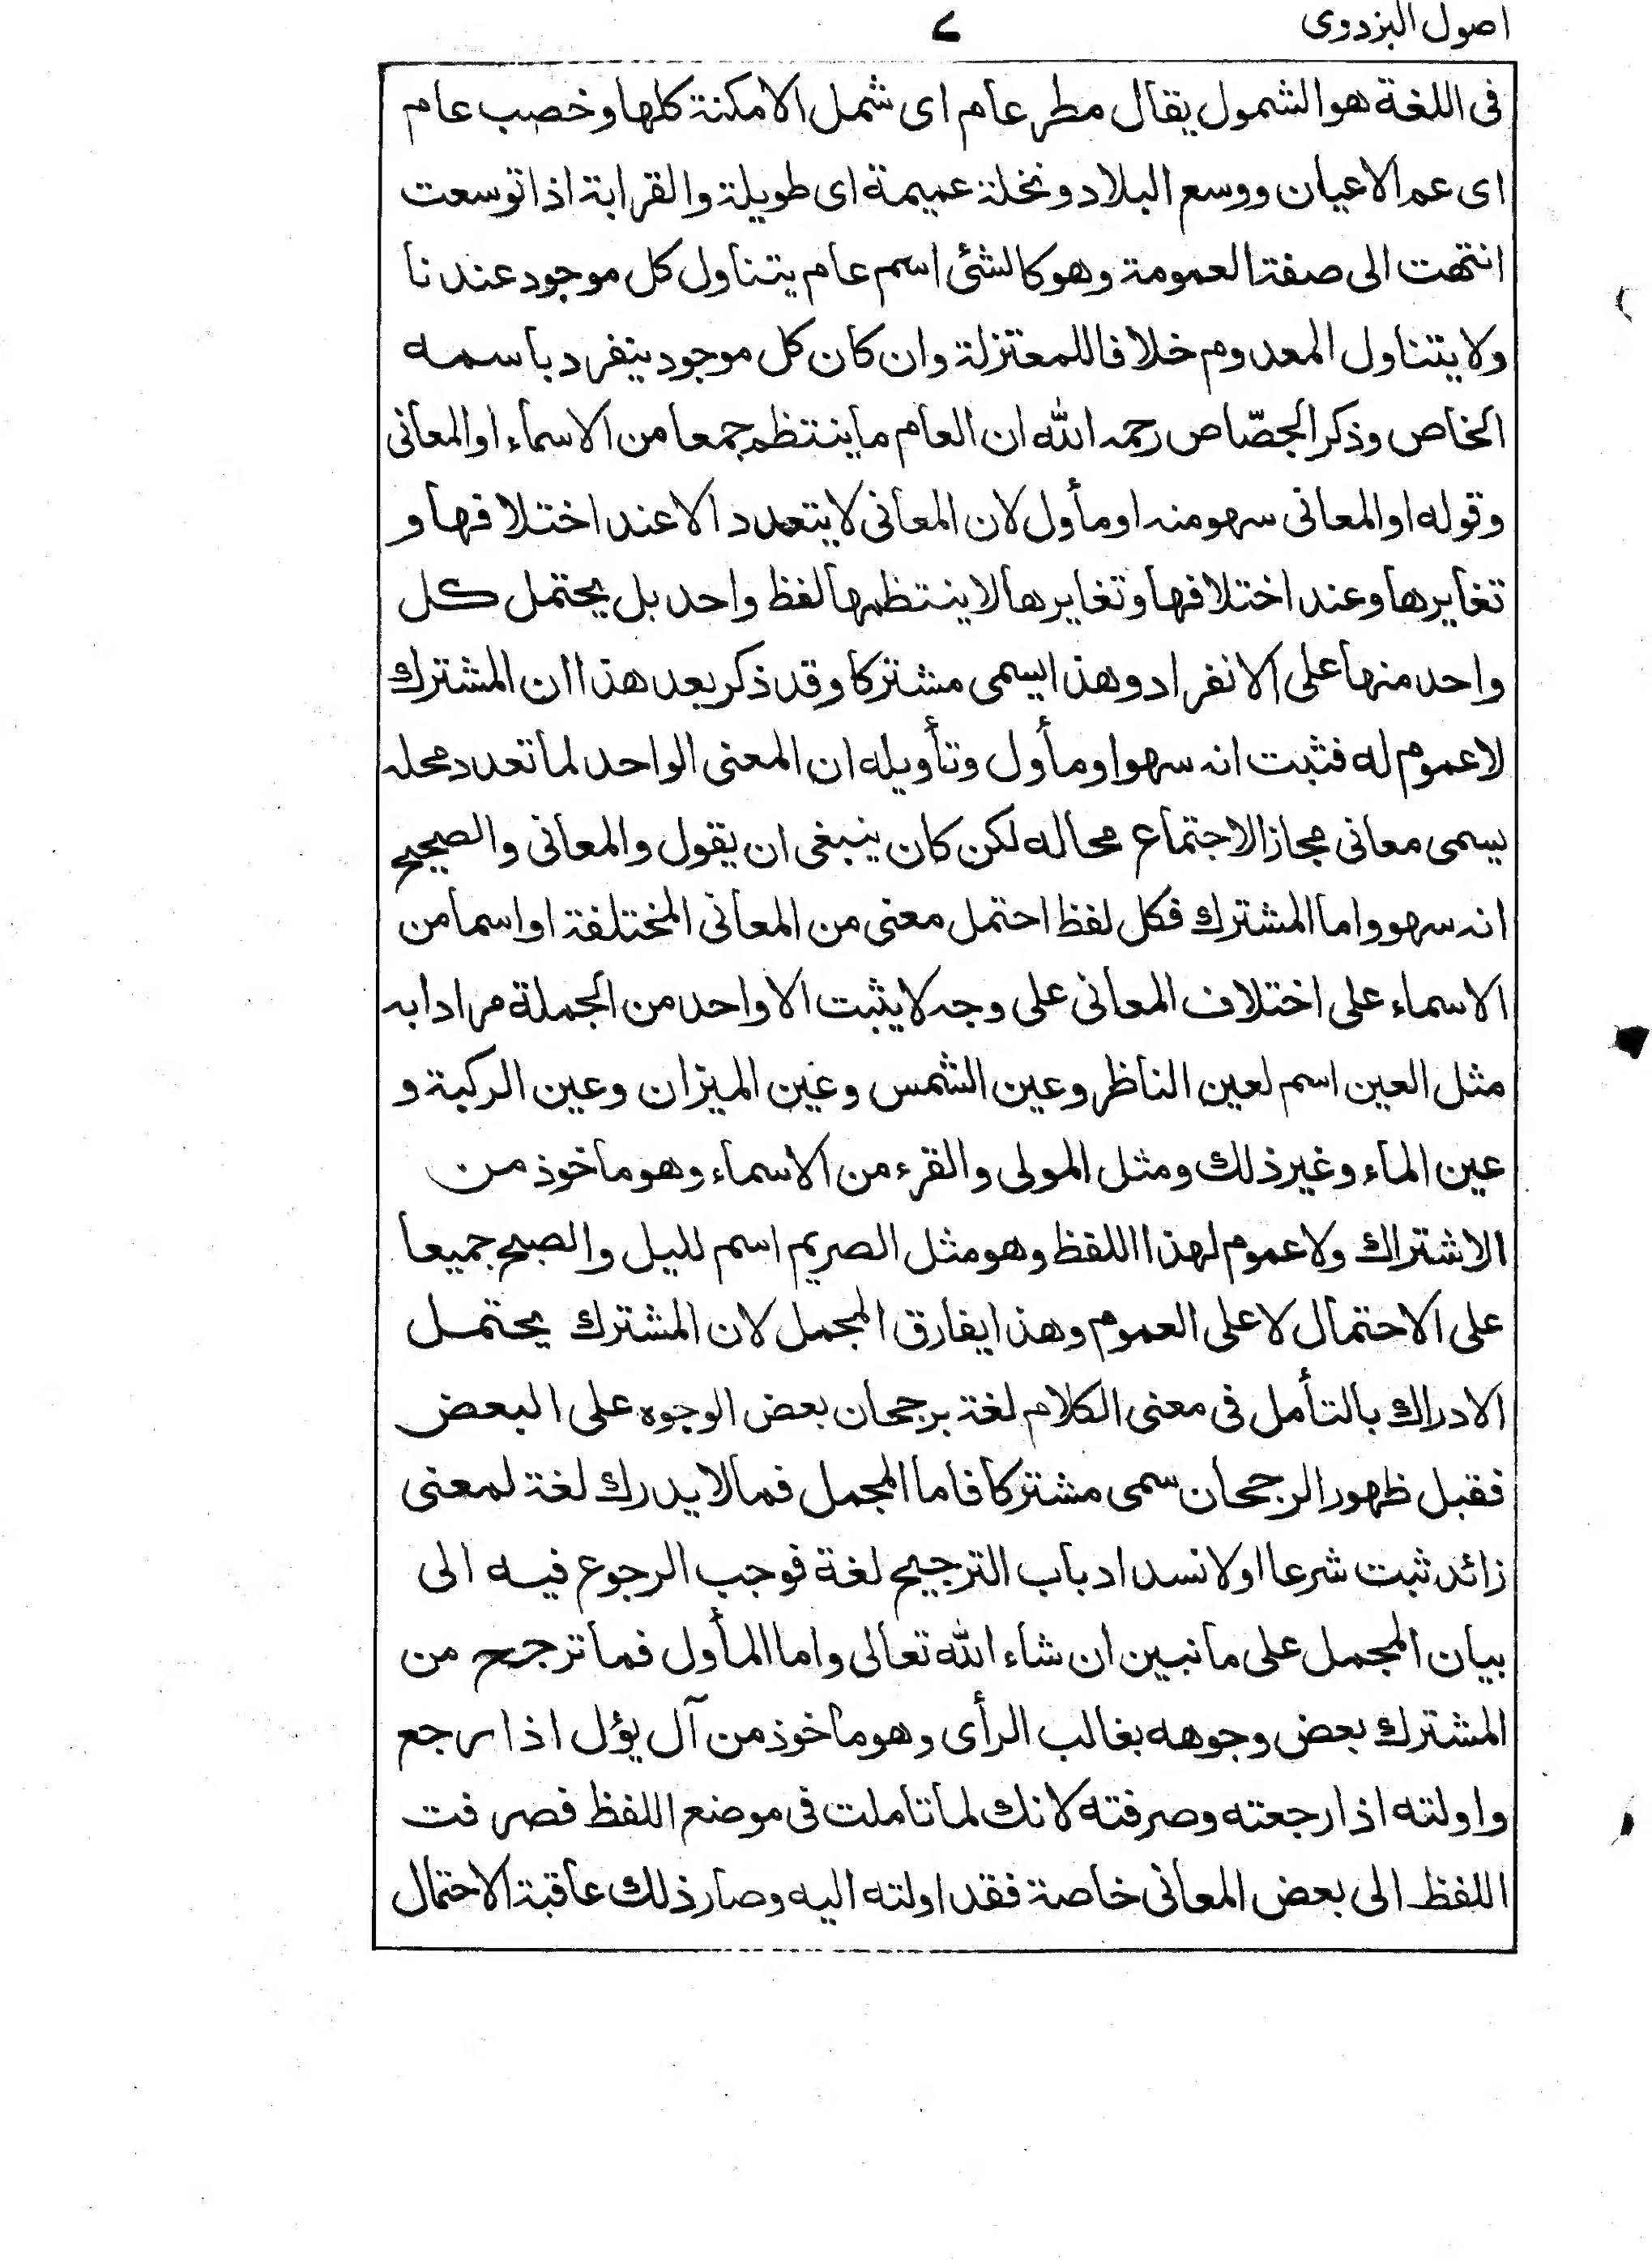 اصول البزدوی ۷
فى اللغة هو الشمول يقال مطر عام اى شمل الامكنة كلها وخصب عام
اى عم الاعيان ووسع البلاد ونخلة عميمة اى طويلة والقرابة اذا توسعت
انتهت الى صفة العمومة وهو كالشئ اسم عام يتناول كل موجود عندنا
ولا يتناول المعدوم خلافا للمعتزلة وان كان كل موجود ينفرد باسمه
الخاص وذكر الجصّاص رحمه الله ان العام ما ينتظم جمعا من الاسماء او المعانى
وقوله او المعانى سهو منه او مأول لان المعانى لا يتعدد الا عند اختلافها و
تغايرها وعند اختلافها وتغايرها لا ينتظمها لفظ واحد بل يحتمل كل
واحد منها على الانفراد وهذا يسمى مشتركا وقد ذكر بعد هذا ان المشترك
لا عموم له فثبت انه سهو او مأول وتأويله ان المعنى الواحد لما تعدد محله
يسمى معانى مجازا لاجتماع محاله لكن كان ينبغى ان يقول والمعانى والصحيح
انه سهو واما المشترك فكل لفظ احتمل معنى من المعانى المختلفة او اسما من
الاسماء على اختلاف المعانى على وجه لا يثبت الا واحد من الجملة مرادا به
مثل العين اسم لعين الناظر وعين الشمس وغين الميزان وعين الركبة و
عين الماء وغير ذلك ومثل المولى والقرء من الاسماء وهو ماخوذ من
الاشتراك ولا عموم لهذا اللفظ وهو مثل الصريم اسم لليل والصبح جميعا
على الاحتمال لا على العموم وهذا يفارق المجمل لان المشترك يحتمل
الادراك بالتأمل فى معنى الكلام لغة برجحان بعض الوجوه على البعض
فقبل ظهور الرجحان سمى مشتركا فاما المجمل فما لا يدرك لغة لمعنى
زائد ثبت شرعا او لانسداد باب الترجيح لغة فوجب الرجوع فيه الى
بيان المجمل على ما نبين ان شاء الله تعالى واما المأول فما ترجح من
المشترك بعض وجوهه بغالب الرأى وهو ماخوذ من آل يؤل اذا رجع
واولته اذا رجعته وصرفته لانك لما تاملت فى موضع اللفظ فصرفت
اللفظ الى بعض المعانى خاصة فقد اولته اليه وصار ذلك عاقبة الاحتمال